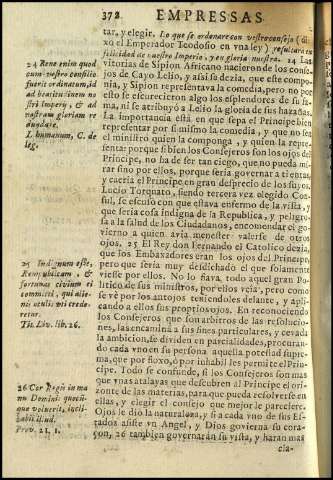 372 EMPRESSAS
tar, y elegir. Lo que se ordenare con vuestro consejo (di-
xo el Emperador Teodosio en vna ley) resultará en
felicidad de nuestro Imperio, y en gloria nuestra. 24 Las
vitorias de Sipion Africano nacieron de los conse-
jos de Cayo Lelio, y assi se dezia, que este compo-
nia, y Sipion representava la comedia, pero no por
esto se escurecieron algo los esplendores de su fa-
ma, ni se atribuyò a Lelio la gloria de sus hazañas.
La importancia està en que sepa el Principe re-
presentar por si mismo la comedia, y que no sea
el ministro quien la componga, y quien la repre-
sente: porque si bien los Consejeros son los ojos del
Principe, no ha de ser tan ciego, que no pueda mi-
rar sino por ellos, porque seria governar a tientas,
y caeria el Principe en gran desprecio de los suyos.
Lucio Torquato, siendo tercera vez elegido Con-
sul, se escusò con que estava enfermo de la vista, y
que seria cosa indigna de la Republica, y peligro-
sa a la salud de los Ciudadanos, encomendar el go-
vierno a quien avia menester valerse de otros
ojos. 25 El Rey don Fernando el Catolico dezia,
que los Embaxadores eran los ojos del Principe,
pero que seria muy desdichado el que solamente
viesse por ellos. No lo fiava todo aquel gran Po-
litico de sus ministros, por ellos veia, pero como
se vè por los antojos teniendolos delante, y apli-
cando a ellos sus propios ojos. En reconociendo
los Consejeros que son arbitros de las resolucio-
nes, las encaminã a sus fines particulares, y cevada
la ambicion, se dividen en parcialidades, procuran-
do cada vno en su persona aquella potestad supre-
ma, que por floxo, ò por inhabil les permite el Prin-
cipe. Todo se confunde, si los Consejeros son mas
que vnas atalayas que descubren al Principe el ori-
zonte de las materias, para que pueda resolverse en
ellas, y elegir el consejo que mejor le pareciere.
Ojos le diò la naturaleza, y si a cada vno de sus Es-
tados assiste vn Angel, y Dios govierna su cora-
çon, 26 tambien governarán su vista, y harán mas
cla-
24 Bene enim quod
cum vestro consilio
fuerit ordinatum, id
ad beatitudinem no
stri Imperij, & ad
nostram gloriam re
dundare.
L. humanum, C. de
leg.
25 Indignum esse,
Rempublicam, &
fortunas civium ei
committi, qui alie-
nis oculis uti crede-
retur.
Tit. Liv. lib. 26.
26 Cor Regis in ma
nu Domini: quocũ-
que voluerit, incli-
nabit illud.
Prov. 21. 1.